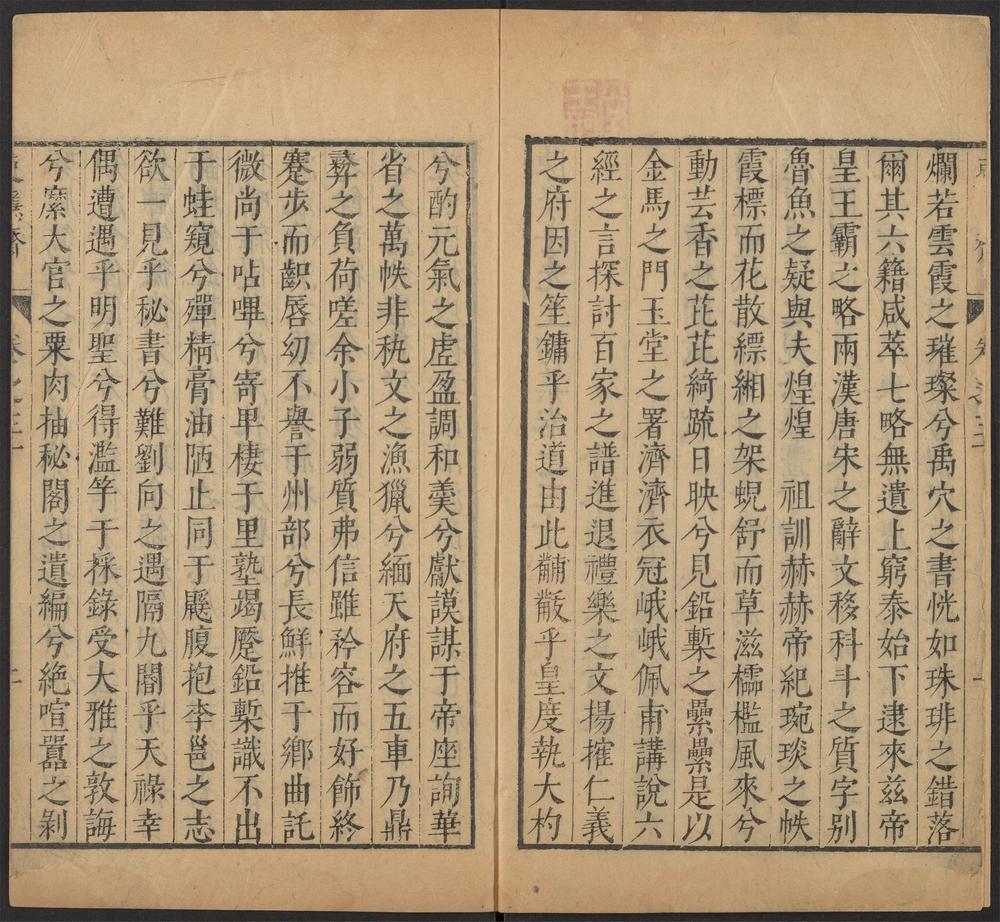 爛若雲霞之璀璨兮禹穴之書恍如珠琲之錯落
爾其六籍咸萃七略無遺上窮泰始下逮來兹帝
皇王霸之略兩漢唐宋之辭文移科斗之質字别
魯魚之疑與夫煌煌 祖訓赫赫帝紀琬琰之帙
霞標而花散縹緗之架蜺舒而草滋櫺檻風來兮
動芸香之芘芘綺疏日映兮見鉛槧之纍纍是以
金馬之門玉堂之署濟濟衣冠峨峨佩甫講說六
經之言探討百家之譜進退禮樂之文揚搉仁義
之府因之笙鏞乎治道由此黼黻乎皇度執大杓
兮酌元氣之虛盈調和羮兮獻謨謀于帝座詢華
省之萬帙非秇文之漁獵兮緬天府之五車乃鼎
彞之負荷嗟余小子弱質弗信雖矜容而好飾終
蹇步而齞唇幼不譽于州部兮長鮮推于鄉曲託
微尚于呫嗶兮寄卑棲于里塾竭蹷鉛槧識不出
于蛙窺兮殫精膏油陋止同于鼹腹抱李邕之志
欲一見乎秘書兮難劉向之遇隔九閽乎天禄幸
偶遭遇乎明聖兮得濫竽于採錄受大雅之敦誨
兮縻大官之粟肉抽秘閣之遺編兮絶喧囂之剝